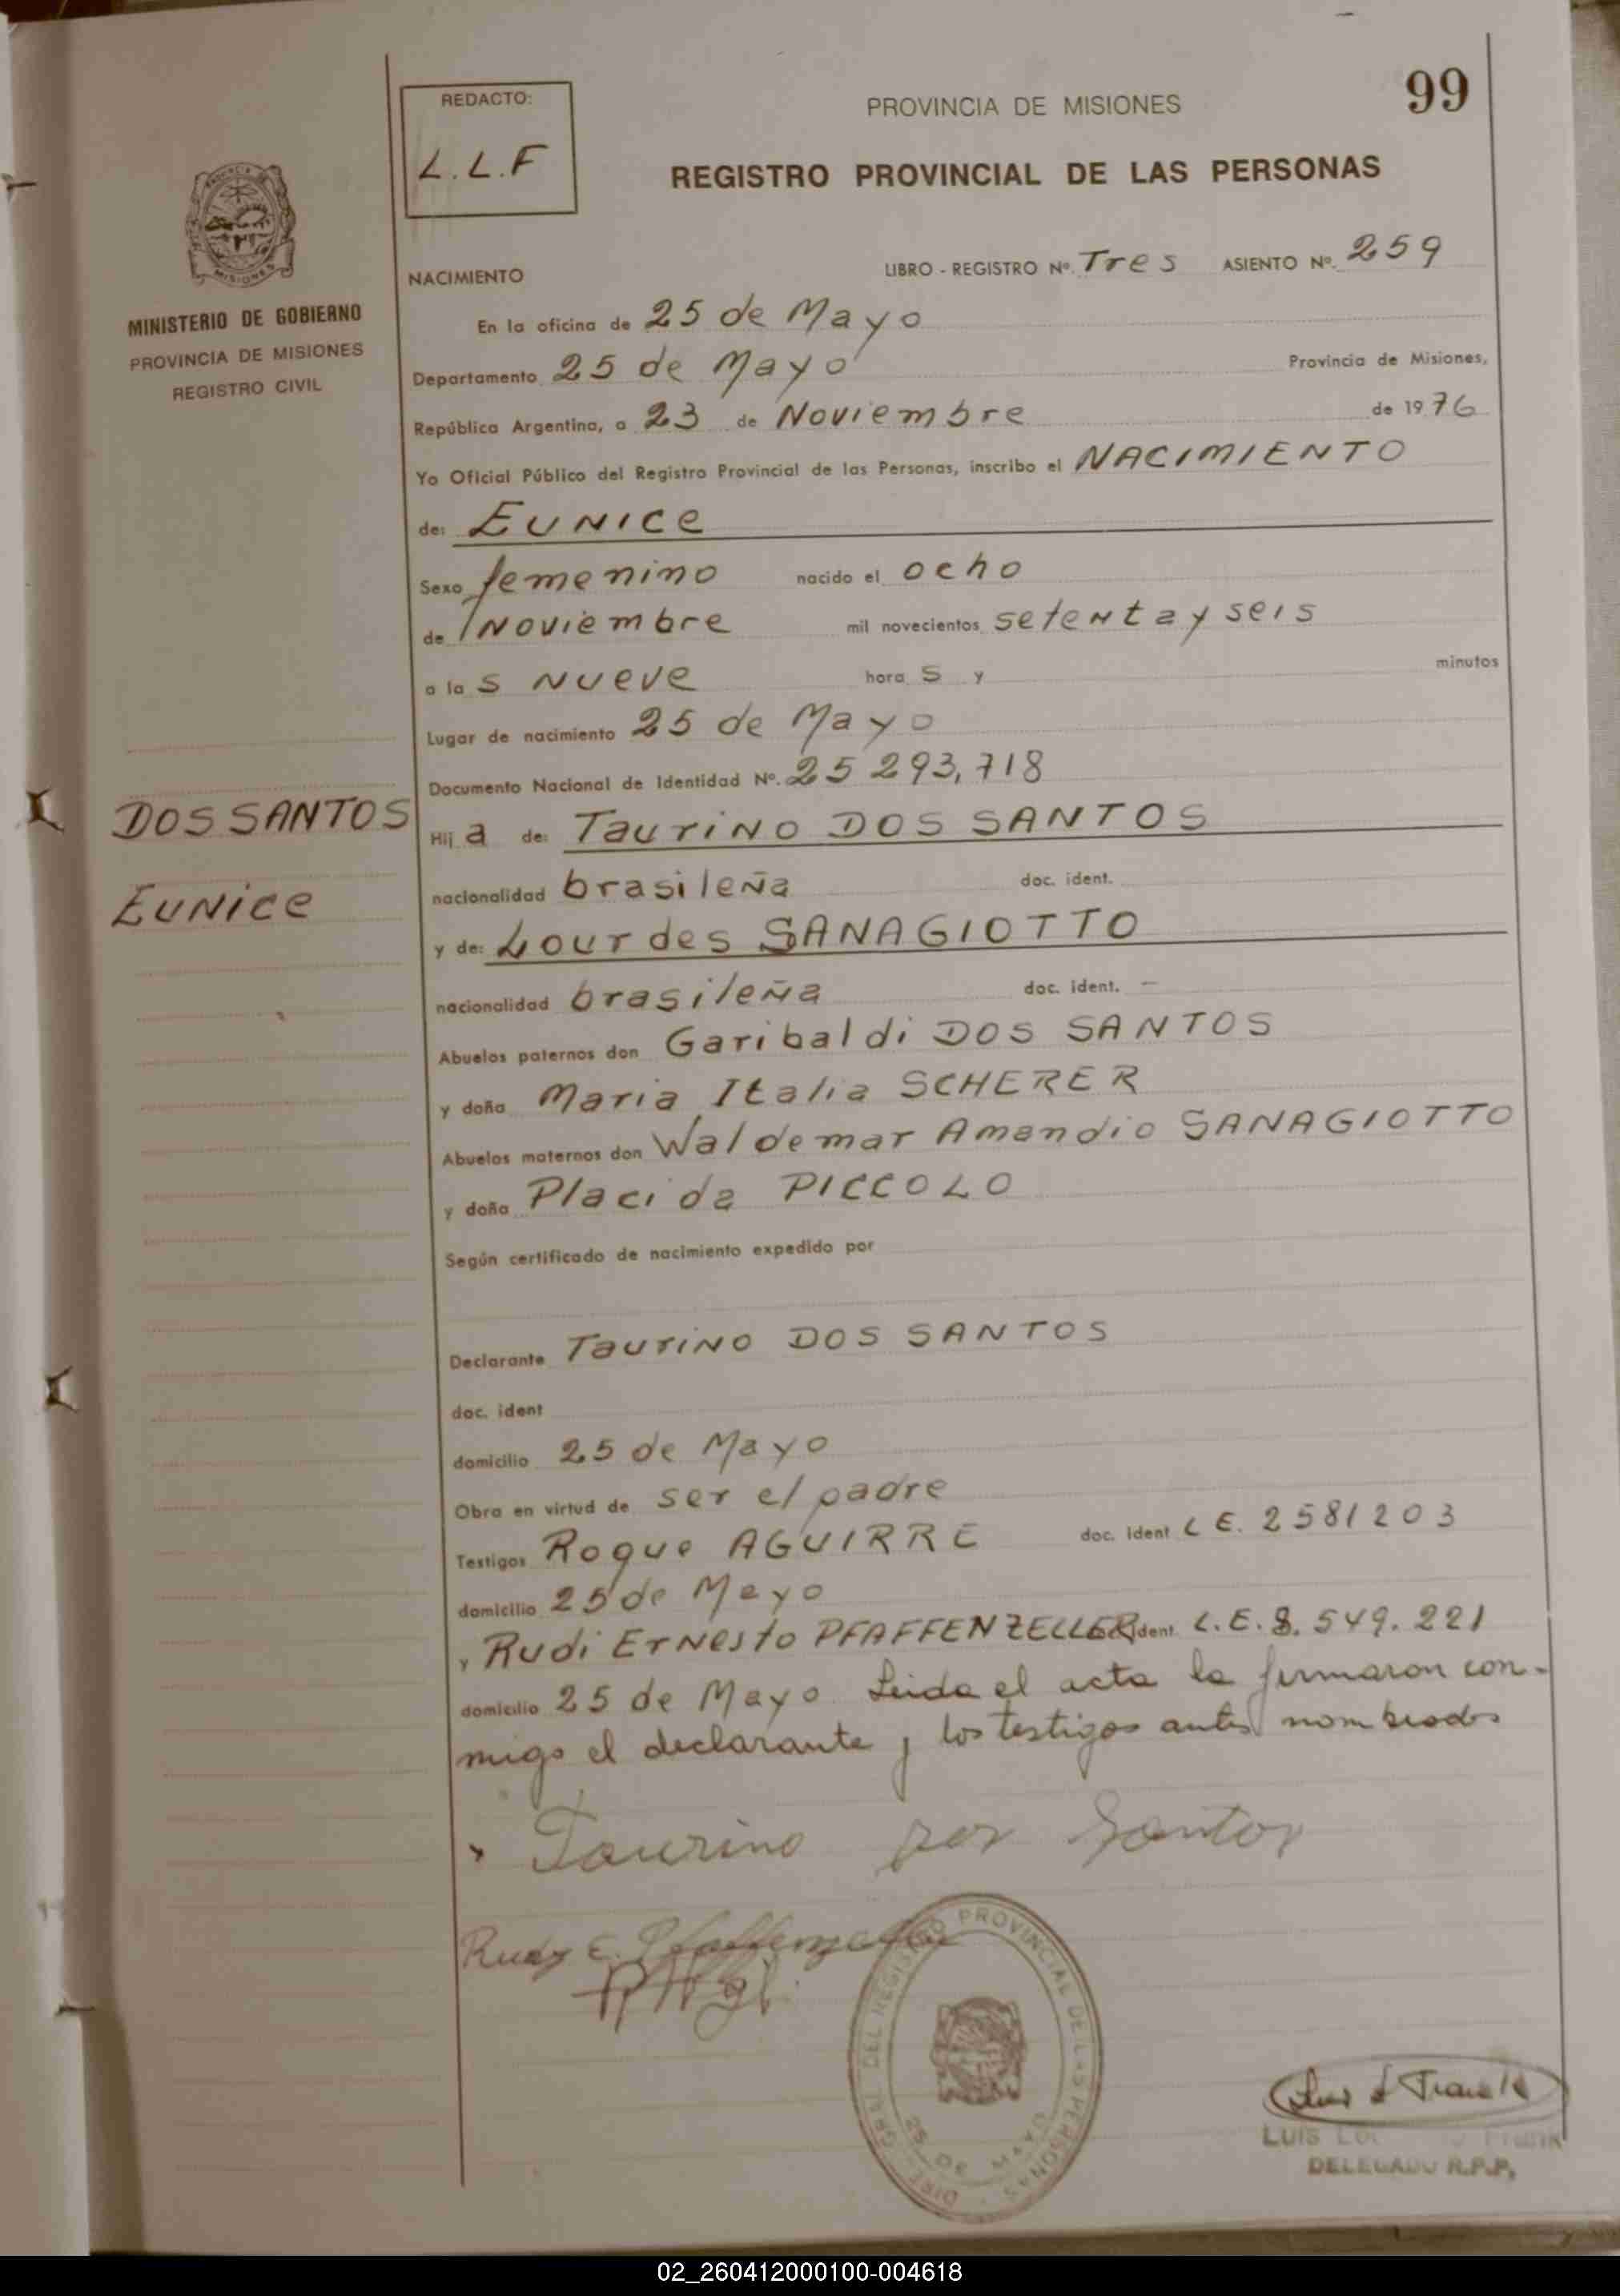 99
REDACTO:
L.L.F
PROVINCIA DE MISIONES
REGISTRO PROVINCIAL DE LAS PERSONAS
MISIONES
MINISTERIO DE GOBIERNO
PROVINCIA DE MISIONES
REGISTRO CIVIL
NACIMIENTO LIBRO - REGISTRO Nº. Tres ASIENTO Nº. 259
En la oficina de 25 de Mayo
Departamento 25 de Mayo Provincia de Misiones,
República Argentina, a 23 de Noviembre de 1976
Yo Oficial Público del Registro Provincial de las Personas, inscribo el NACIMIENTO
de: EUNICE
Sexo femenino nacido el ocho
de Noviembre mil novecientos setenta y seis
a las nueve horas y minutos
Lugar de nacimiento 25 de Mayo
Documento Nacional de Identidad Nº. 25 293,718
DOS SANTOS
Eunice
Hija de: Taurino DOS SANTOS
nacionalidad brasileña doc. ident.
y de: Lourdes SANAGIOTTO
nacionalidad brasileña doc. ident. —
Abuelos paternos don Garibaldi DOS SANTOS
y doña Maria Italia SCHERER
Abuelos maternos don Waldemar Amandio SANAGIOTTO
y doña Placida PICCOLO
Según certificado de nacimiento expedido por
Declarante Taurino DOS SANTOS
doc. ident
domicilio 25 de Mayo
Obra en virtud de ser el padre
Testigos Roque AGUIRRE doc. ident L E. 2581203
domicilio 25 de Mayo
y Rudi Ernesto PFAFFENZELLER ident L.E. 8.549.221
domicilio 25 de Mayo Leida el acta la firmaron con-
migo el declarante y los testigos antes nombrados
Taurino Santos
Rudy E. Pfaffenzeller
DIRE. GRAL DEL REGISTRO PROVINCIAL DE LAS PERSONAS
25 DE MAYO
Luis L Frank
LUIS Frank
DELEGADO R.P.P,
02_260412000100-004618